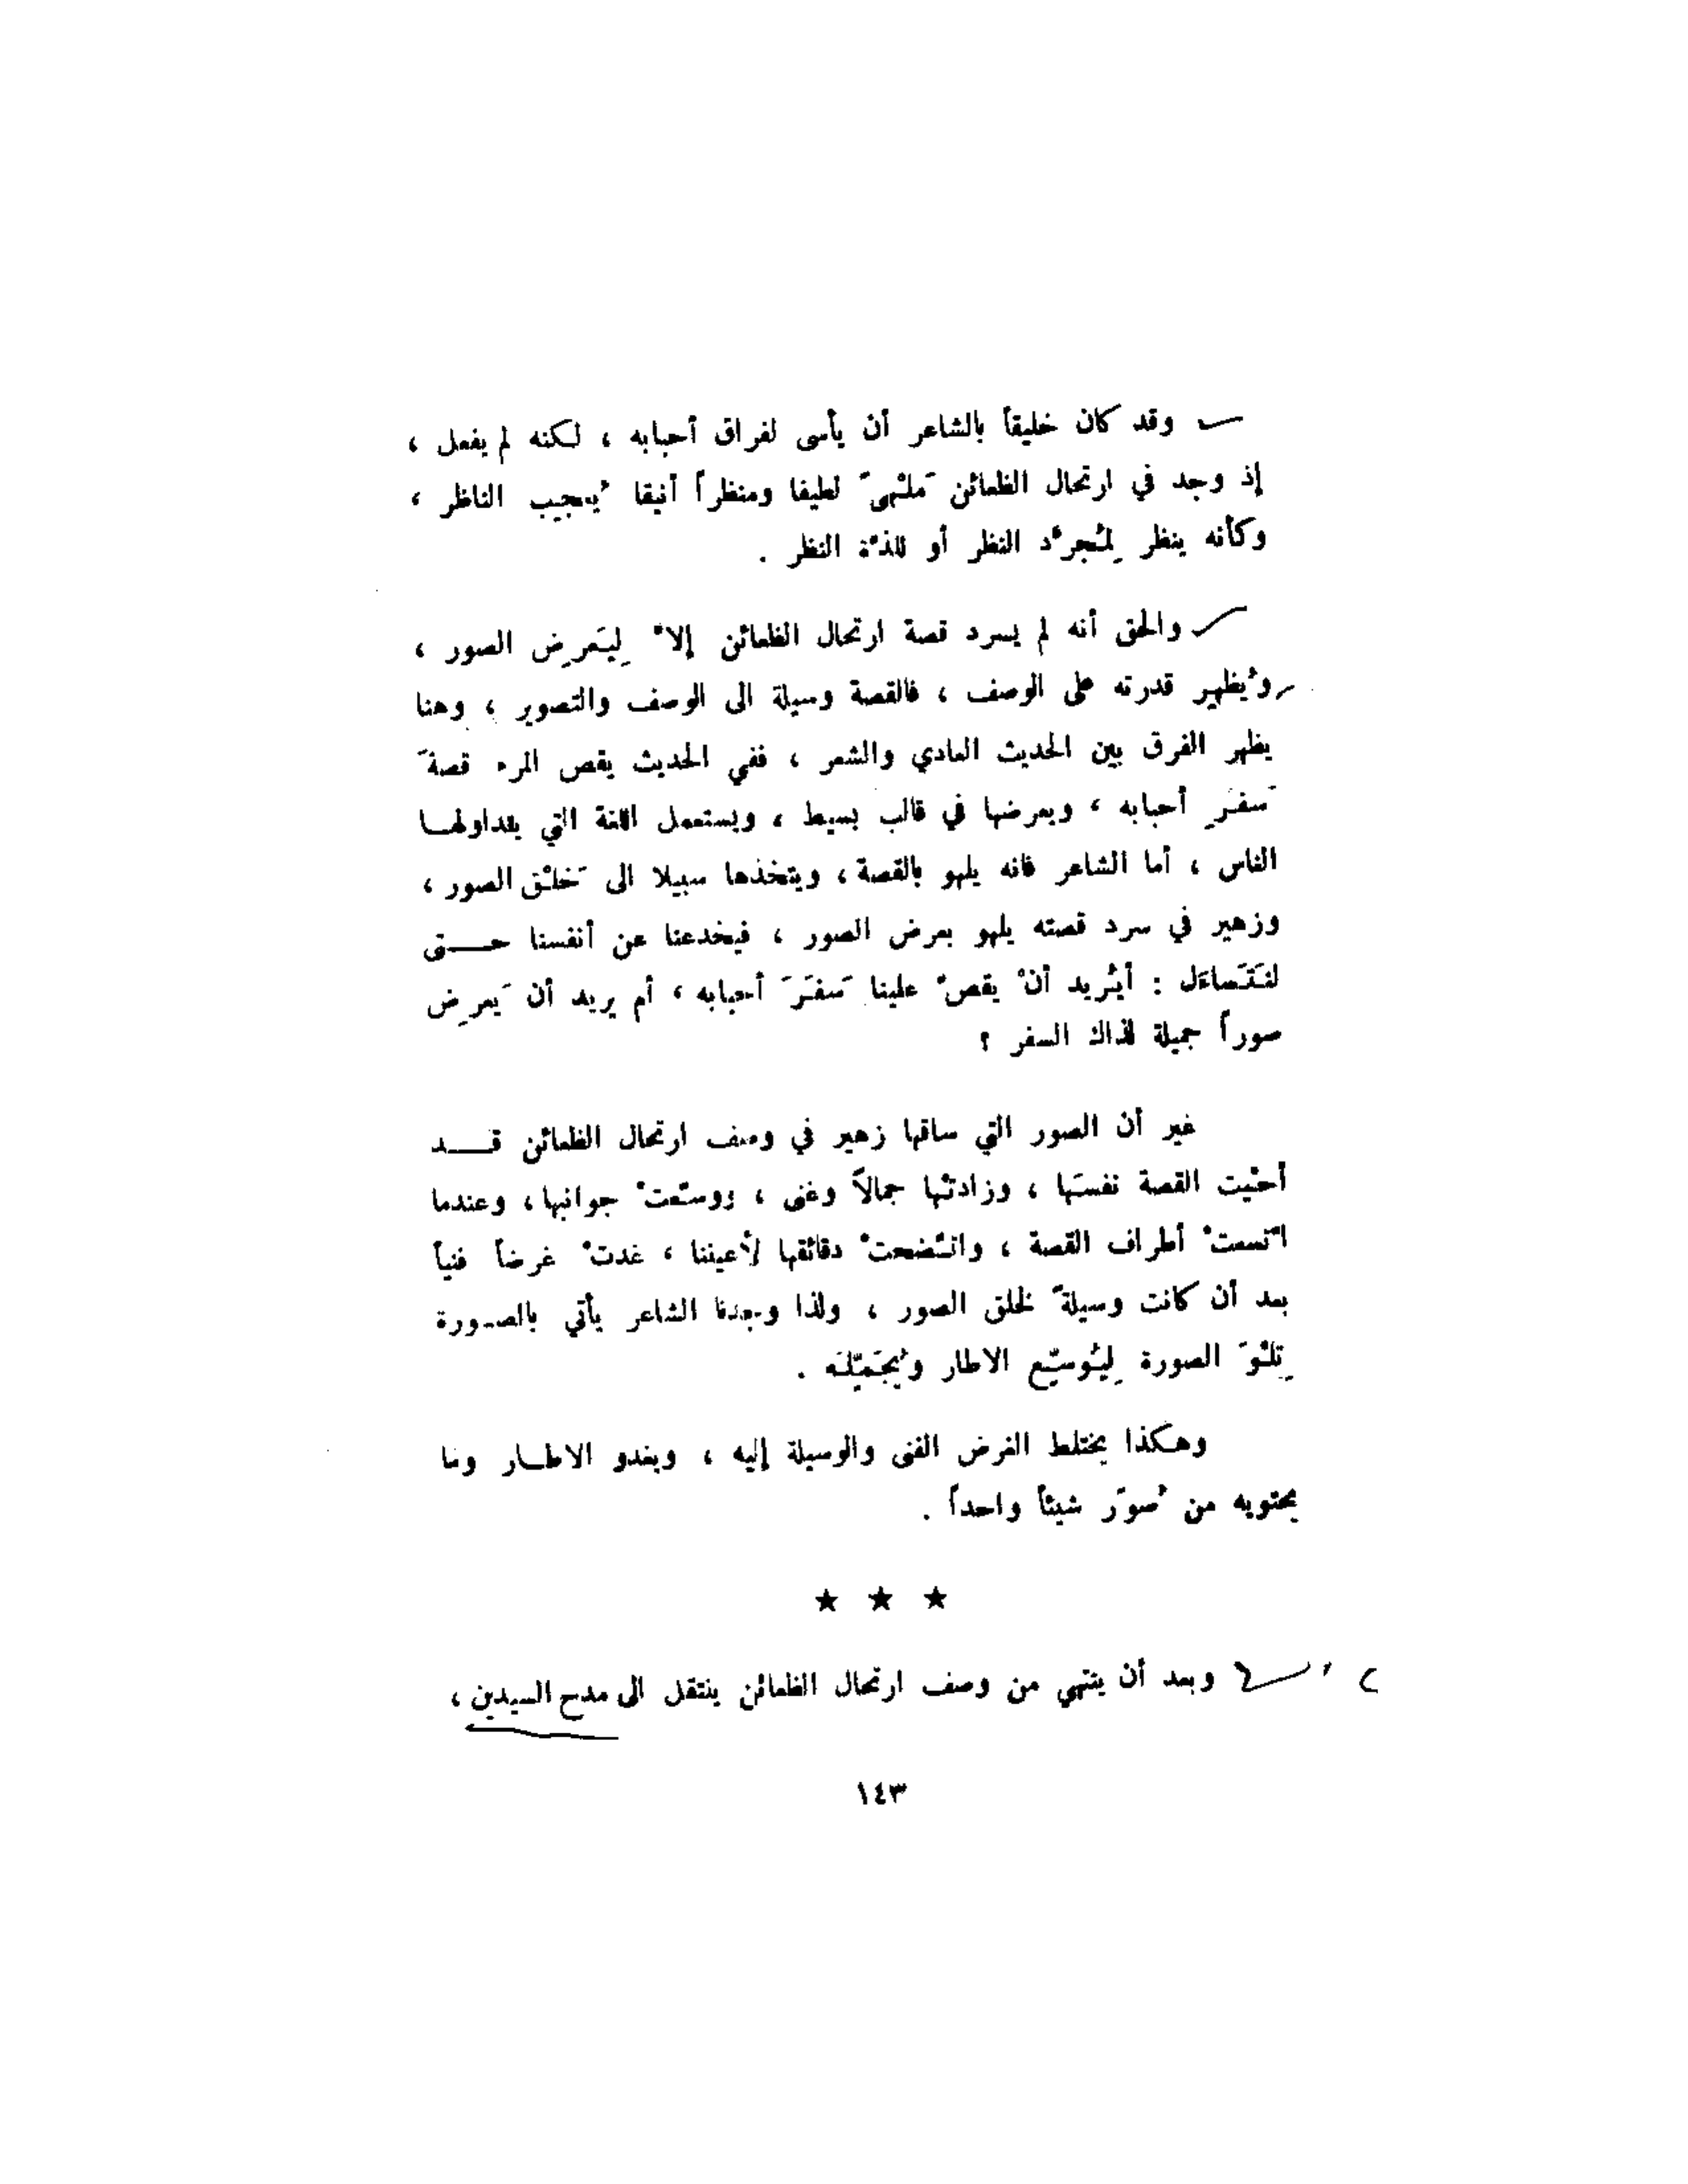 وقد كان خليقاً بالشاعر أن يأسى لفراق أحبابه ، لكنه لم يفعل ،
إذ وجد في ارتحال الظعائن مَلْهىً لطيفا ومنظراً أنيقا يُعجِب الناظر ،
وكأنه ينظر لِمُجرَّد النظر أو للذَّة النظر .
والحق أنه لم يسرد قصة ارتحال الظعائن إلاّ لِيَعرِض الصور ،
ويُظهِر قدرته على الوصف ، فالقصة وسيلة الى الوصف والتصوير ، وهنا
يظهر الفرق بين الحديث العادي والشعر ، ففي الحديث يقص المرء قصةَ
سَفَرِ أحبابه ، ويعرضها في قالب بسيط ، ويستعمل اللغة التي يتداولهـا
الناس ، أما الشاعر فانه يلهو بالقصة ، ويتخذها سبيلا الى خَلْق الصور ،
وزهير في سرد قصته يلهو بعرض الصور ، فيخدعنا عن أنفسنا حـــتى
لنَتَساءَل : أيُريد أنْ يقصّ علينا سَفَرَ أحبابه ، أم يريد أن يَعرِض
صوراً جميلة لذاك السفر ؟
غير أن الصور التي ساقها زهير في وصف ارتحال الظعائن قـــد
أحْيت القصة نفسَها ، وزادتْها جمالاً وغنى ، ووسَّعتْ جوانبها ، وعندما
اتّسعتْ أطراف القصة ، واتَّضحتْ دقائقها لأعيننا ، غدتْ غرضاً فنياً
بعد أن كانت وسيلةً لخلق الصور ، ولذا وجدنا الشاعر يأتي بالصـورة
تِلْوَ الصورة لِيُوسِّع الاطار ويُجَمِّلَه .
وهكذا يختلط الغرض الفنى والوسيلة إليه ، ويغدو الاطـار وما
يحتويه من صُوَر شيئاً واحداً .
★ ★ ★
وبعد أن ينتهي من وصف ارتحال الظعائن ينتقل الى مدح السيدين ،
١٤٣